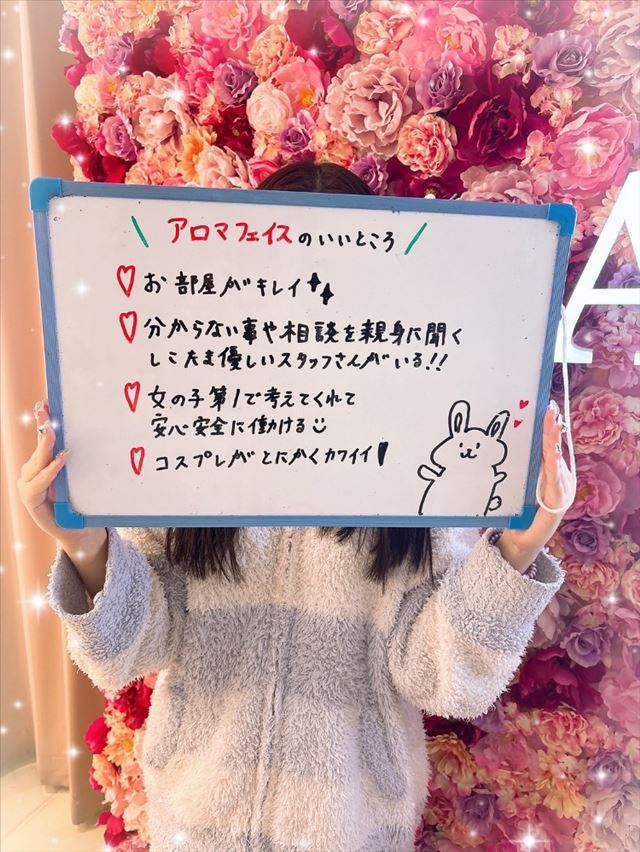 \ アロマフェイスのいいところ /
お部屋がキレイ
分からない事や相談を親身に聞く
しこたま優しいスタッフさんがいる!!
女の子第1で考えてくれて
安心安全に働ける
コスプレがとにかくカワイイ!
A